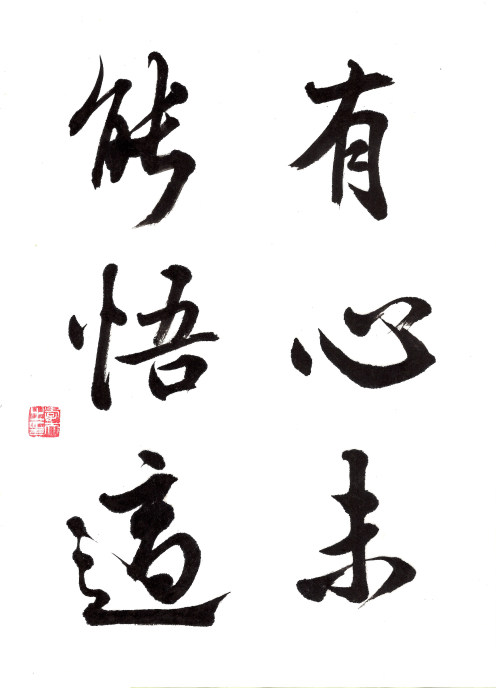 有心未
能悟適